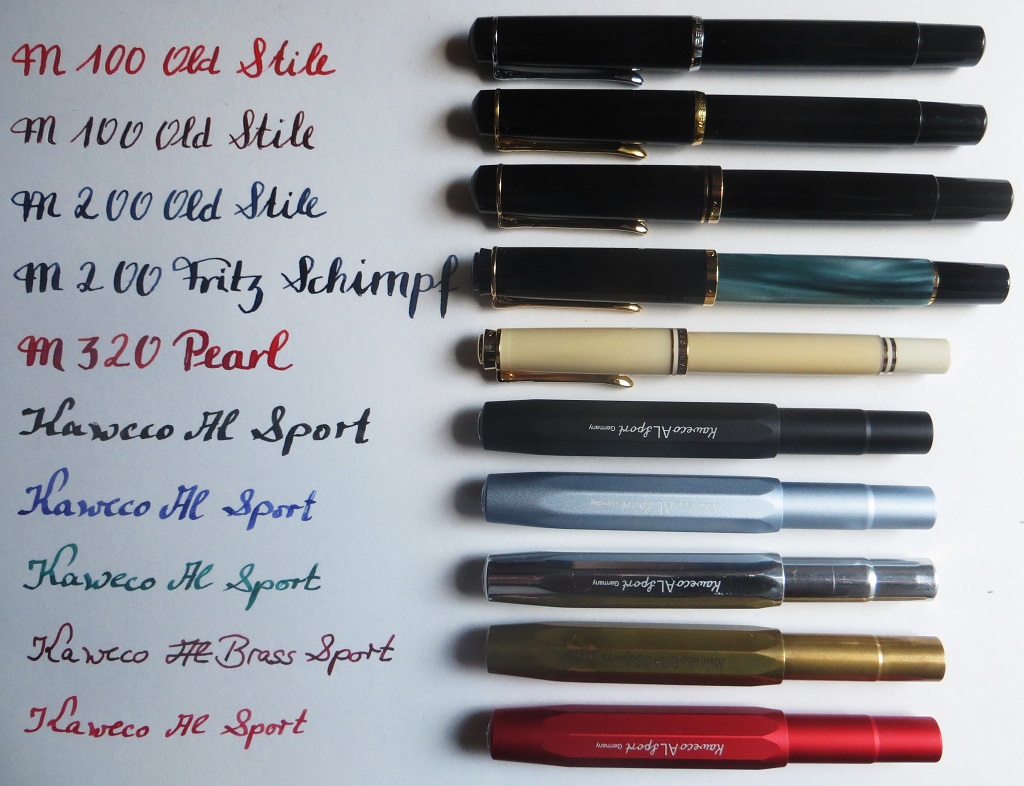 M 100 Old Stile
M 100 Old Stile
M 200 Old Stile
M 200 Fritz Schimpf
M 320 Pearl
Kaweco Al Sport
Kaweco AL Sport Germany
Kaweco Al Sport
Kaweco AL Sport Germany
Kaweco Al Sport
Kaweco AL Sport Germany
Kaweco Al Brass Sport
Kaweco Al Sport
Kaweco AL Sport Germany